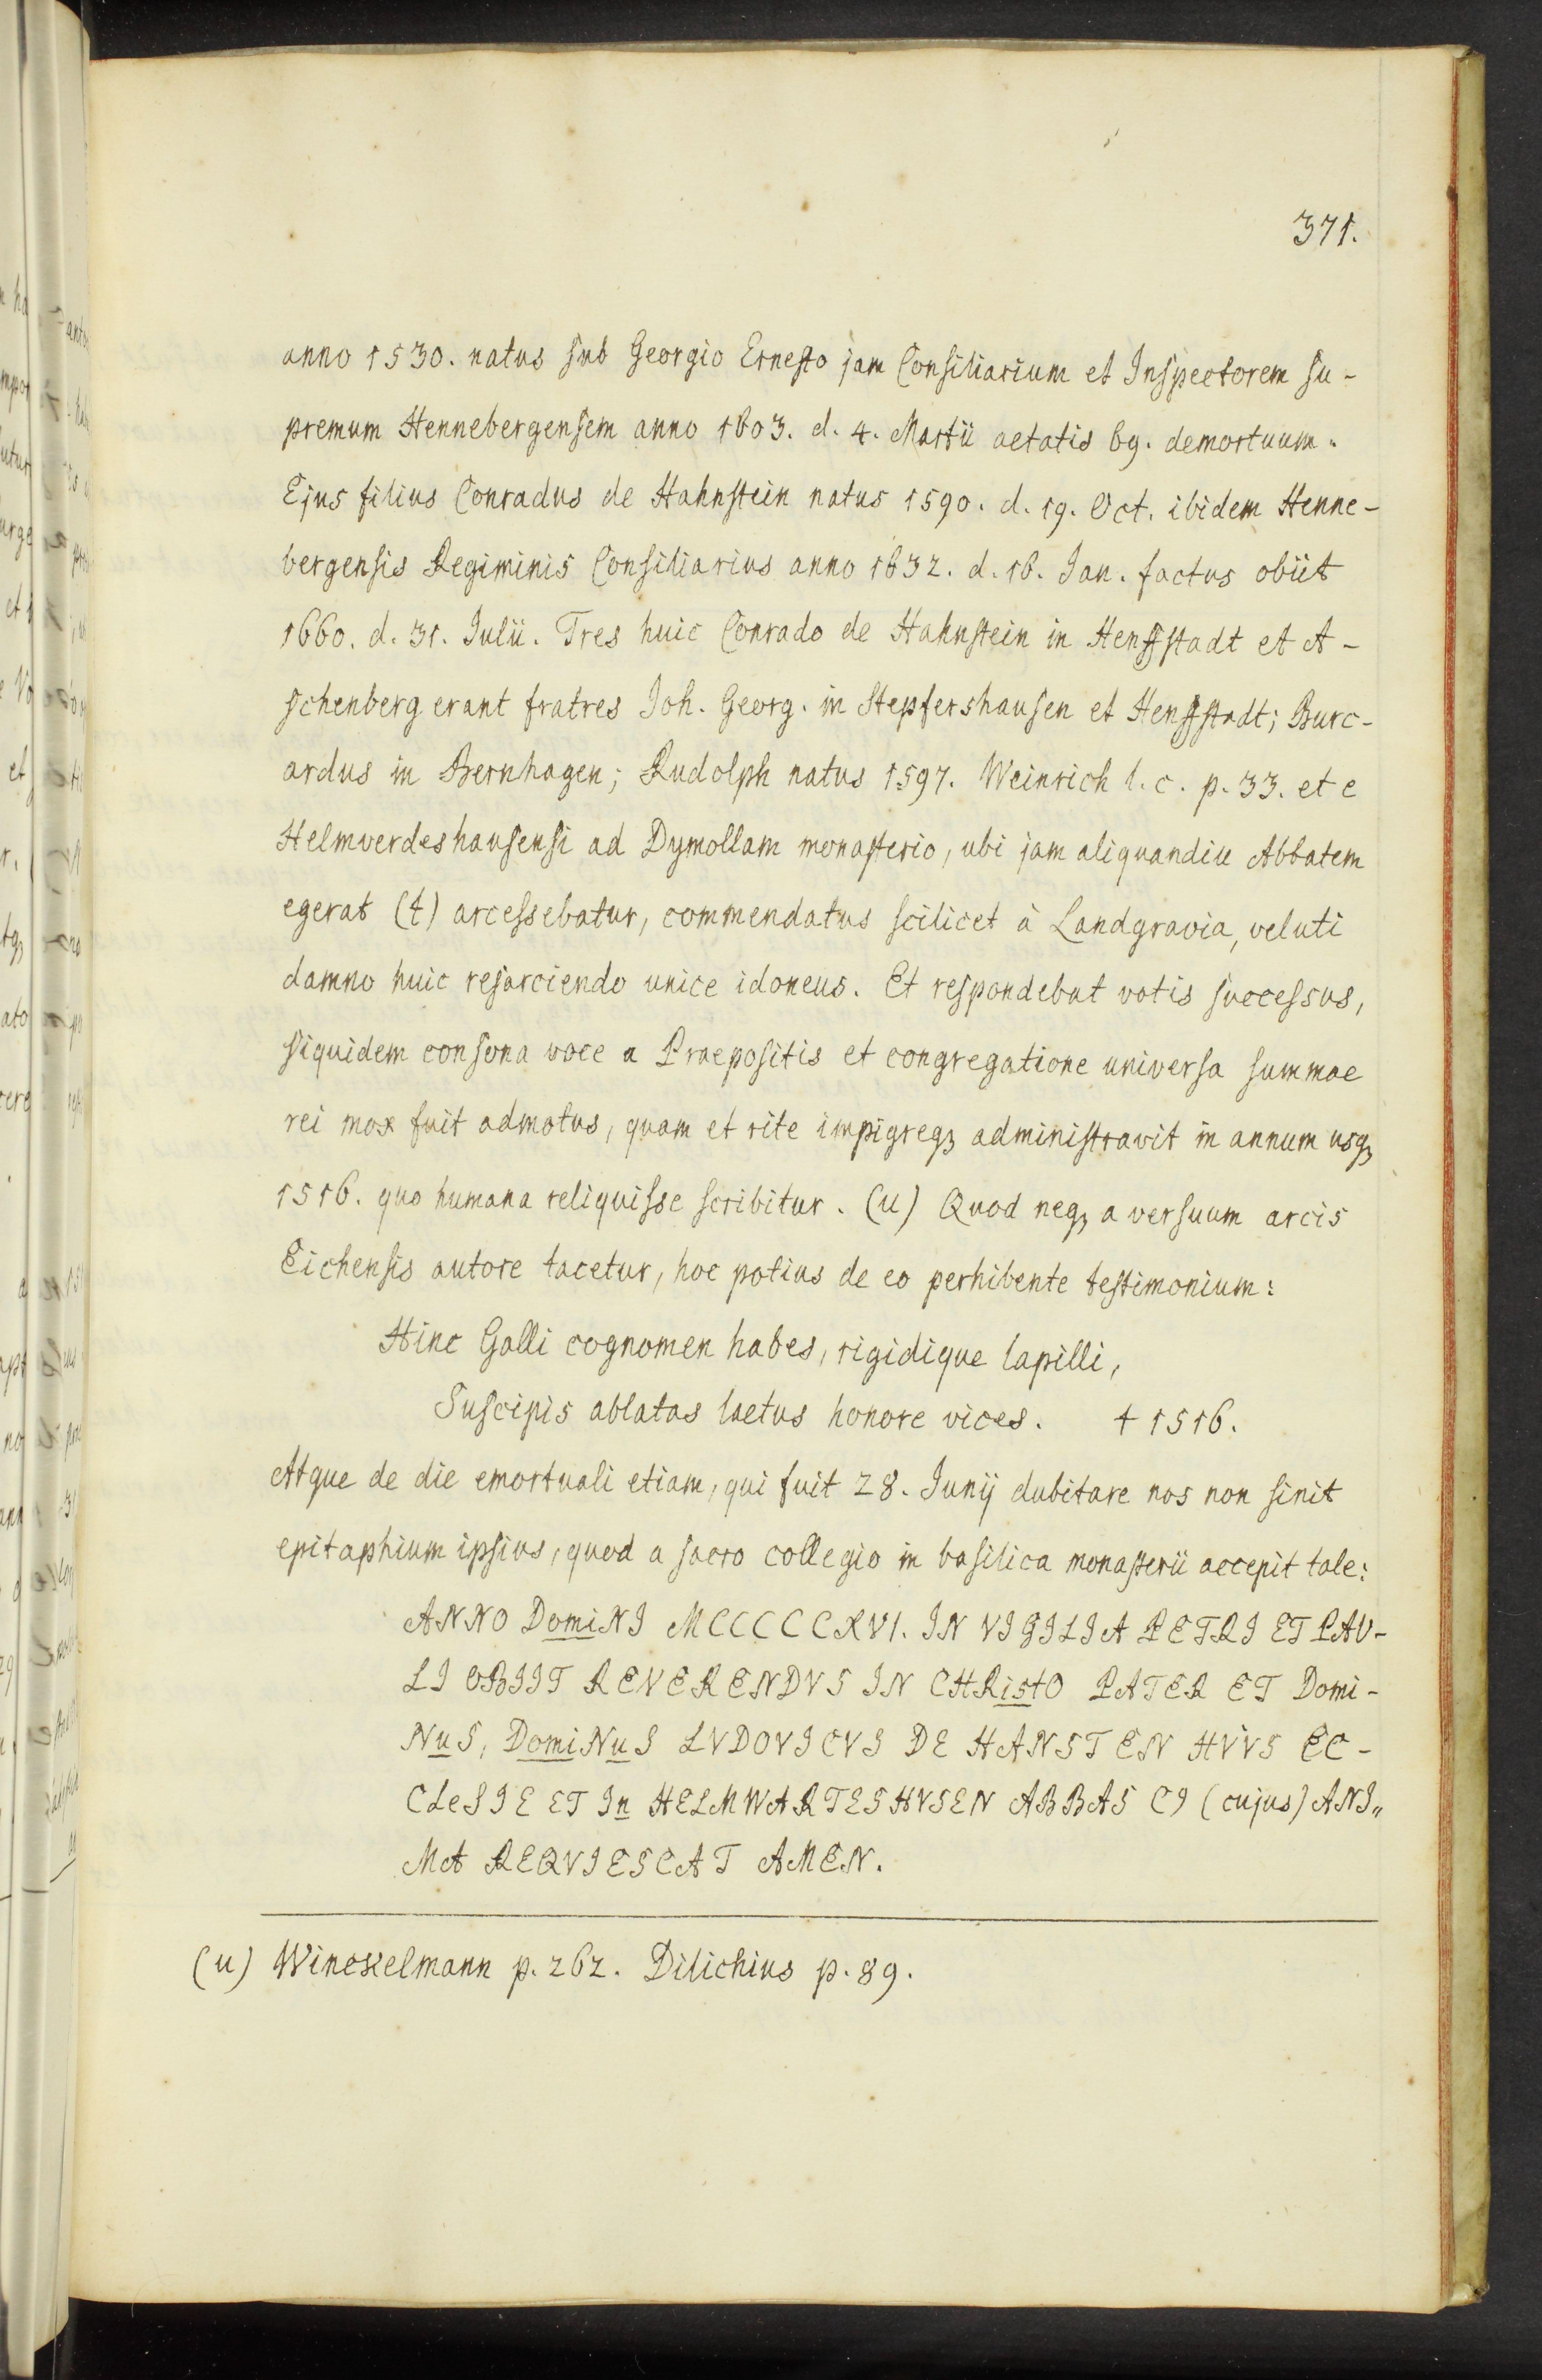 371.
anno 1530. natus sub Georgio Ernesto jam Consiliarium et Inspectorem su-
premum Hennebergensem anno 1603. d. 4. Martii aetatis 69. demortuum.
Ejus filius Conradus de Hahnstein natus 1590. d. 19. Oct. ibidem Henne-
bergensis Regiminis Consiliarius anno 1632. d. 16. Jan. factus obiit
1660. d. 31. Julii. Tres huic Conrado de Hahnstein in Henffstadt et A-
schenberg erant fratres Joh. Georg. in Stepfershausen et Henffstadt; Burc-
ardus in Bernhagen; Rudolph natus 1597. Weinrich l. c. p. 33. et e
Helmverdeshausensi ad Dymollam monasterio, ubi jam aliquandiu Abbatem
egerat (t) arcessebatur, commendatus scilicet à Landgravia, veluti
damno huic resarciendo unice idoneus. Et respondebat votis successus,
siquidem consona voce a Praepositis et congregatione universa summae
rei mox fuit admotus, quam et rite impigreqꝫ administravit in annum usqꝫ
1516. quo humana reliquisse scribitur. (u) Quod neqꝫ a versuum arcis
Eichensis autore tacetur, hoc potius de eo perhibente testimonium:
Hinc Galli cognomen habes, rigidique lapilli,
Suscipis ablatas laetus honore vices. † 1516.
Atque de die emortuali etiam, qui fuit 28. Junij dubitare nos non sinit
epitaphium ipsius, quod a sacro collegio in basilica monasterii accepit tale:
ANNO DomiNI MCCCCCXVI. IN VIGILIA PETRI ET PAU-
LI OBIIT REVERENDVS IN CHRistO PATER ET Domi-
NuS, DomiNuS LVDOVICVS DE HANSTEN HVVS EC-
CLeSIE ET In HELMWARTESHVSEN ABBAS C9 (cujus) ANI„
MA REQVIESCAT AMEN.
(u) Winckelmann p. 262. Dilichius p. 89.